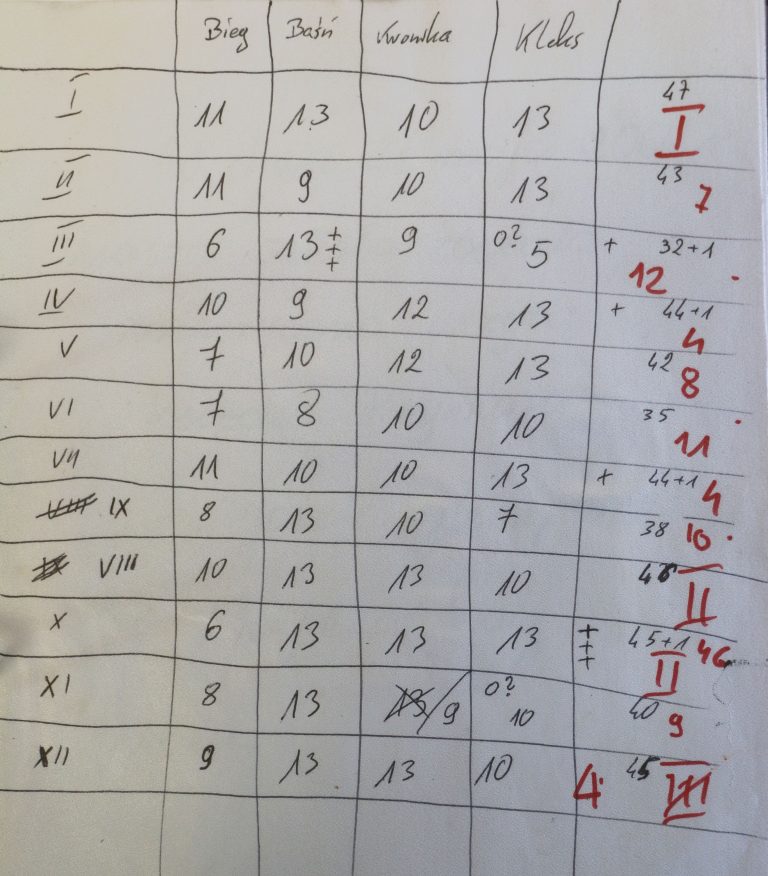 Bieg Baśń Kronika Kleks
I 11 13 10 13 47 I
II 11 9 10 13 43 7
III 6 13+++ 9 0? 5 + 32+1 12
IV 10 9 12 13 + 44+1 4
V 7 10 12 13 42 8
VI 7 8 10 10 35 11
VII 11 10 10 13 + 44+1 4
VIII IX 8 13 10 7 38 10
IX VIII 10 13 13 10 46 II
X 6 13 13 13 +++ 45+1 46 II
XI 8 13 13/9 0? 10 40 9
XII 9 13 13 10 4 45 III